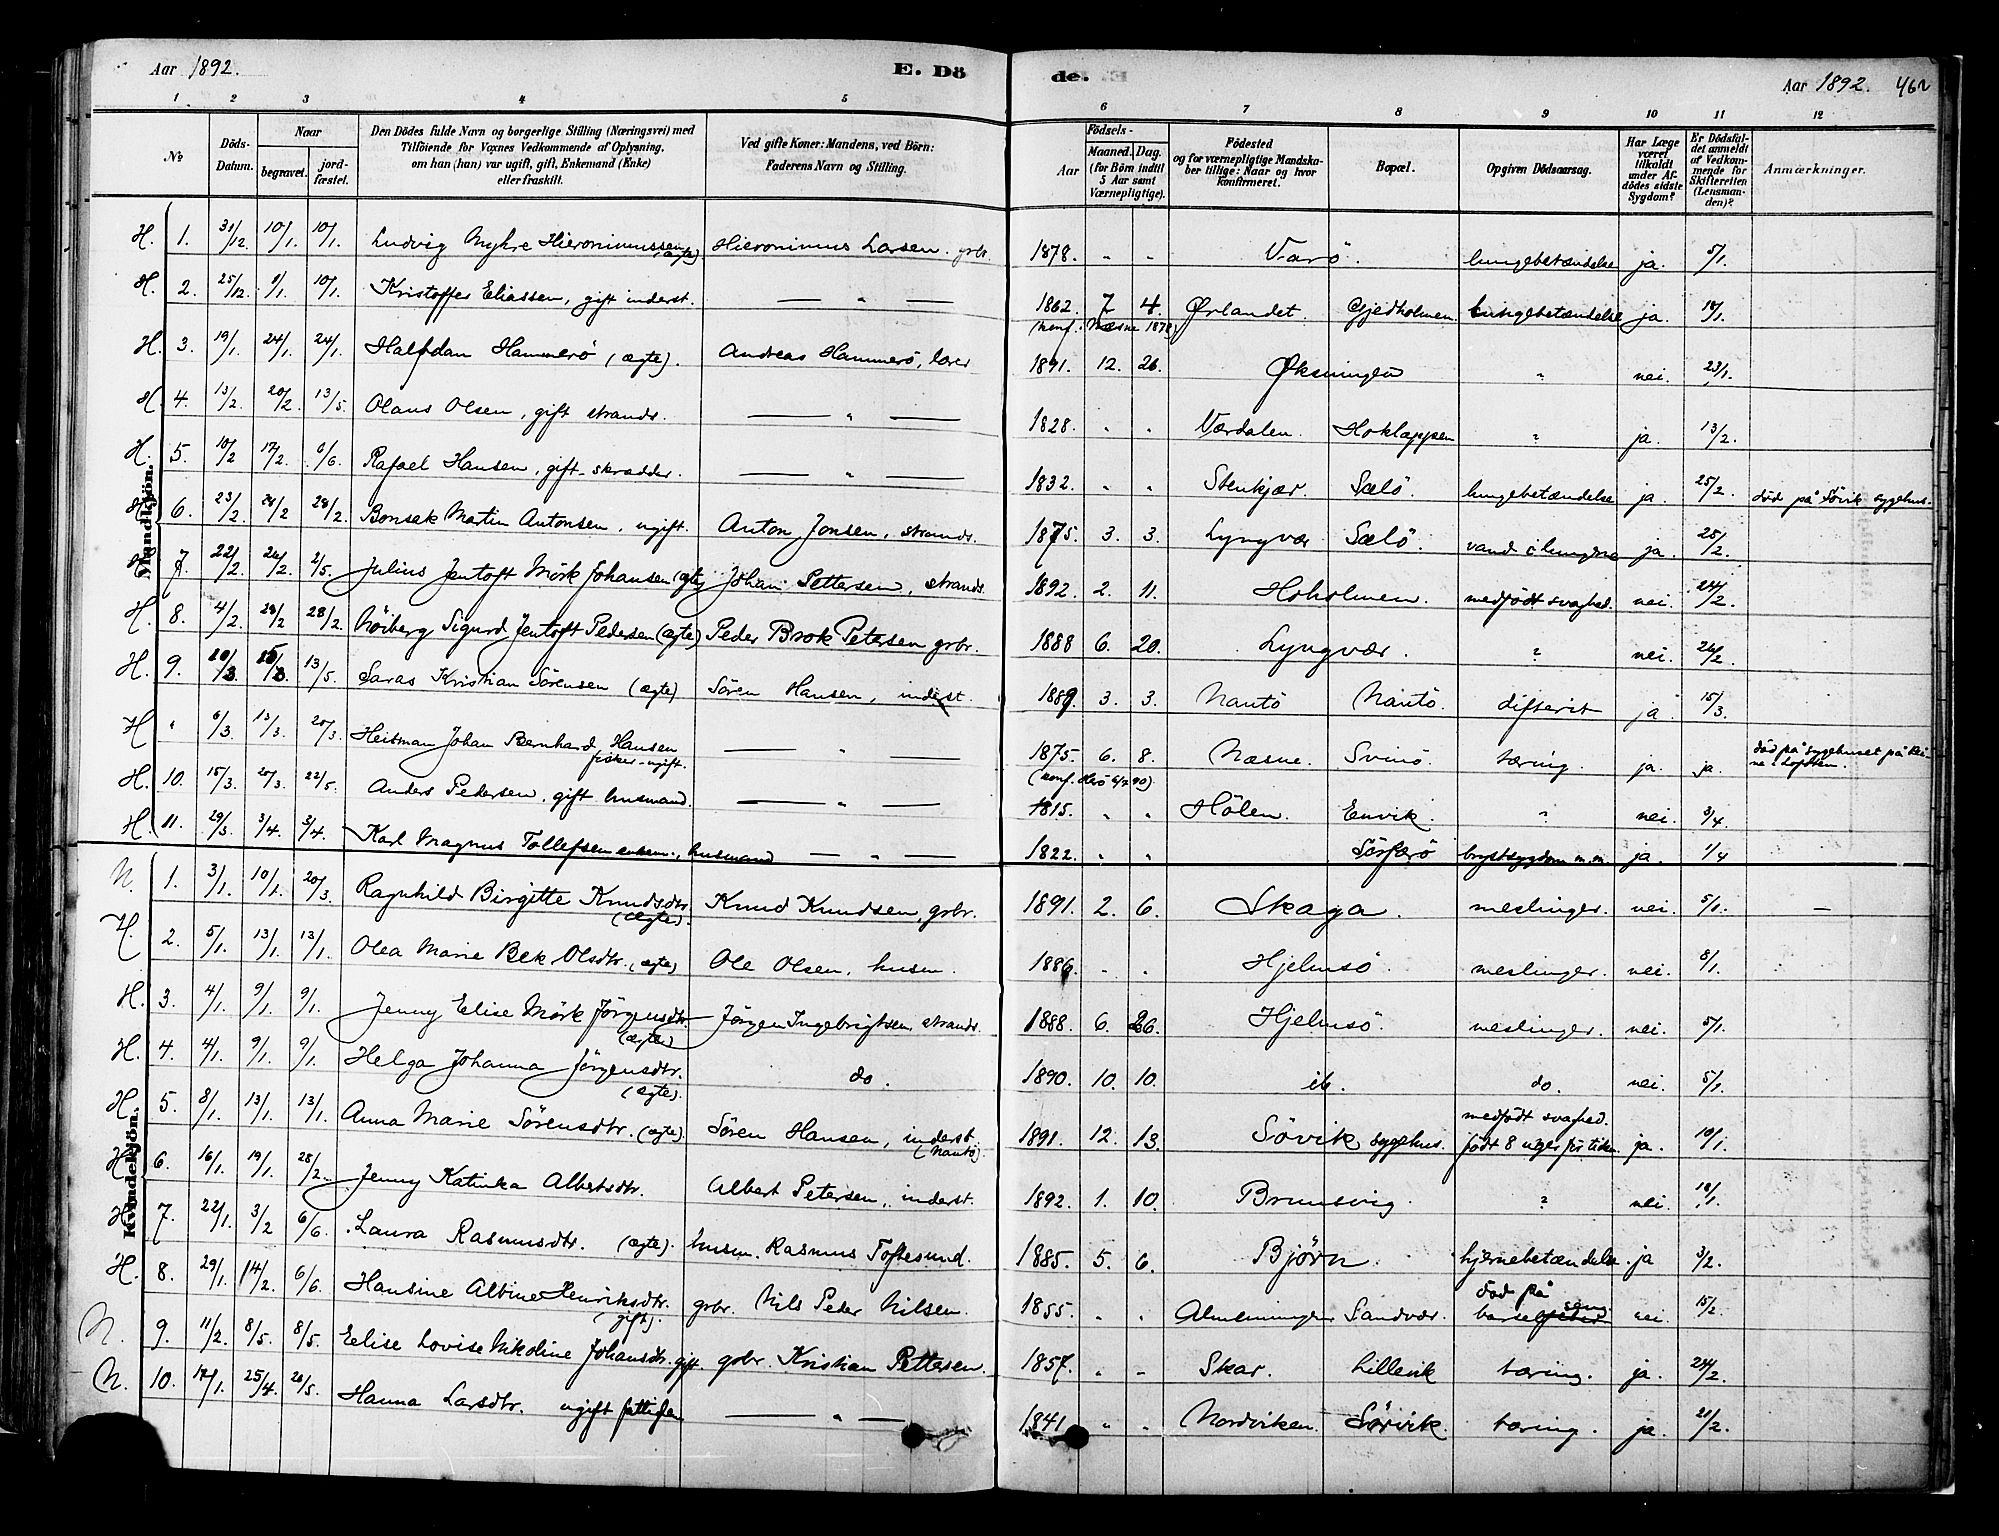 Aar 1892. E. Dö de. Aar 1892. 462
1 2 3 4 5 6 7 8 9 10 11 12
№ Döds-Datum. Naar begravet. jordfæstet. Den Dödes fulde Navn og borgerlige Stilling (Næringsvei) med Tilföiende for Voxnes Vedkommende af Oplysning, om han (hun) var ugift, gift, Enkemand (Enke) eller fraskilt. Ved gifte Koner: Mandens, ved Börn: Faderens Navn og Stilling. Aar Födsels-Maaned. Dag. (for Börn indtil 5 Aar samt Værnepligtige). Födested og for værnepligtige Mandskaber tillige: Naar og hvor konfirmeret. Bopæl. Opgiven Dödsaarsag. Har Læge været tilkaldt under Afdödes sidste Sygdom? Er Dödsfaldet anmeldt af Vedkommende for Skifteretten (Lensmanden)? Anmærkninger.
Mandkjön.
H. 1. 31/12. 10/1. 10/1. Ludvig Myhre Hieronimussen (ægte) Hieronimus Larsen. grbr. 1878. " " Varö. lungebetændelse ja. 5/1.
H. 2. 25/12. 9/1. 10/1. Kristoffer Eliassen, gift inderst. — " — 1862. 7 4. Ørlandet. Gjedholmen lungebetændelse ja. 18/1.
(konf. Næsne 1878)
H. 3. 19/1. 24/1. 24/1. Halfdan Hammerö (ægte). Andreas Hammerö, lærer 1891. 12. 26. Øksningen " nei. 23/1.
H. 4. 13/2. 20/2. 13/5. Olaus Olsen, gift strands. — " — 1828. " " Værdalen. Hoklappen ? ja. 13/2.
H. 5. 10/2 17/2. 6/6. Rafael Hansen, gift skrædder. — " — 1832. " " Stenkjær. Sælö. lungebetændelse ja. 25/2. död på Sövik sygehus.
H. 6. 23/2. 28/2 28/2. Bonsak Martin Antonsen, ugift. Anton Jonsen, strands. 1875. 3. 3. Lyngvær Sælö. vand i lungerne ja. 25/2.
H. 7. 22/2. 26/2. 2/5. Julius Jentoft Mörk Johansen (ægte) Johan Pettersen, strands. 1892. 2. 11. Hoholmen. medfödt svaghed. nei. 24/2.
H. 8. 4/2. 28/2 28/2. Nöiberg Sigurd Jentoft Pedersen (ægte) Peder Brok Petersen grbr. 1888 6. 20. Lyngvær. ? nei. 26/2.
H. 9. 10/3 15/3. 13/5. Saras Kristian Sörensen (ægte) Sören Hansen, inderst. 1889. 3. 3. Nautö Nautö. difterit ja 15/3.
H " 6/3. 13/3. 20/3. Heitman Johan Bernhard Hansen — " — 1875. 6. 8. Næsne. Svinö. tæring. ja. ja. död på sygehuset på Reine i Lofoten.
fisker ugift. (konf. Herö 6/7 90)
H. 10. 15/3. 20/3. 22/5. Anders Pedersen, gift husmand. — " — 1815. " " Hölen. Envik. " nei. 3/4.
H. 11. 29/3. 3/4. 3/4. Karl Magnus Tollefsen enkem., husmand — " — 1822. " " Sörfærö brystsygdom m.m. ja. 1/4
Kvindekjön.
N. 1. 3/1. 10/1. 20/3. Ragnhild Birgitte Knudsdtr. (ægte). Knud Knudsen, grbr. 1891. 2. 6. Skaga. meslinger. nei. 5/1. —
H. 2. 5/1. 13/1. 13/1. Olea Marie Bek Olsdtr. (ægte) Ole Olsen, husm. 1886. " " Hjelmsö. meslinger. nei. 8/1.
H. 3. 4/1. 9/1. 9/1. Jenny Elise Mörk Jörgensdtr. (ægte) Jörgen Ingebrigtsen, strands. 1888. 6. 26. Hjelmsö. meslinger. nei. 5/1.
H. 4. 4/1. 9/1. 9/1. Helga Johanna Jörgensdtr. (ægte). do. 1890. 10. 10. ib. do. nei. 5/1.
H. 5. 8/1. 13/1. 13/1. Anna Marie Sörensdtr. (ægte). Sören Hansen, inderst (Nautö). 1891. 12. 13. Sövik sygehus. medfödt svaghed. födt 8 uger för tiden. ja. 10/1.
H. 6. 16/1. 19/1. 28/2. Jenny Katinka Albertsdtr. Albert Petersen, inderst. 1892. 1. 10. Brunsvig. ? nei. 18/1.
H. 7. 22/1. 3/2 6/6. Laura Rasmusdtr. (ægte). husm. Rasmus Toftesund. 1885. 5. 6. Björn. hjernebetændelse. ja 3/2.
H. 8. 29/1. 14/2. 6/6. Hansine Albine Henriksdtr. (gift). grbr. Nils Peder Nilsen. 1855. " " Almenningen Sandvær. död på barselseng nei. 15/2.
N. 9. 11/2. 8/5. 8/5. Eelise Lovise Nikoline Johansdtr. gift. grbr. Kristian Pettersen. 1857. " " Skar. Lillevik tæring. ja. 24/2.
N. 10. 17/1. 25/4. 26/5. Hanna Larsdtr. ugift fattiglem — " — 1841. " " Nordviken Sörvik. tæring. ja. 21/2.